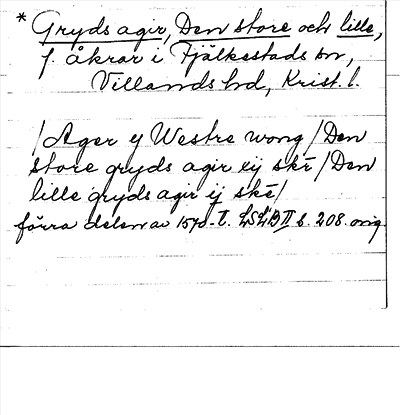 * Gryds agir, Den store och lille,
f. åkrar i Fjälkestads sn,
Villands hd, Krist. l.
/Ager ij Westre wong/Den
store gryds agir ij skē/Den
lille gryds agir ij skē/
förra delen av 1570-t. LSLB II s. 208. orig.